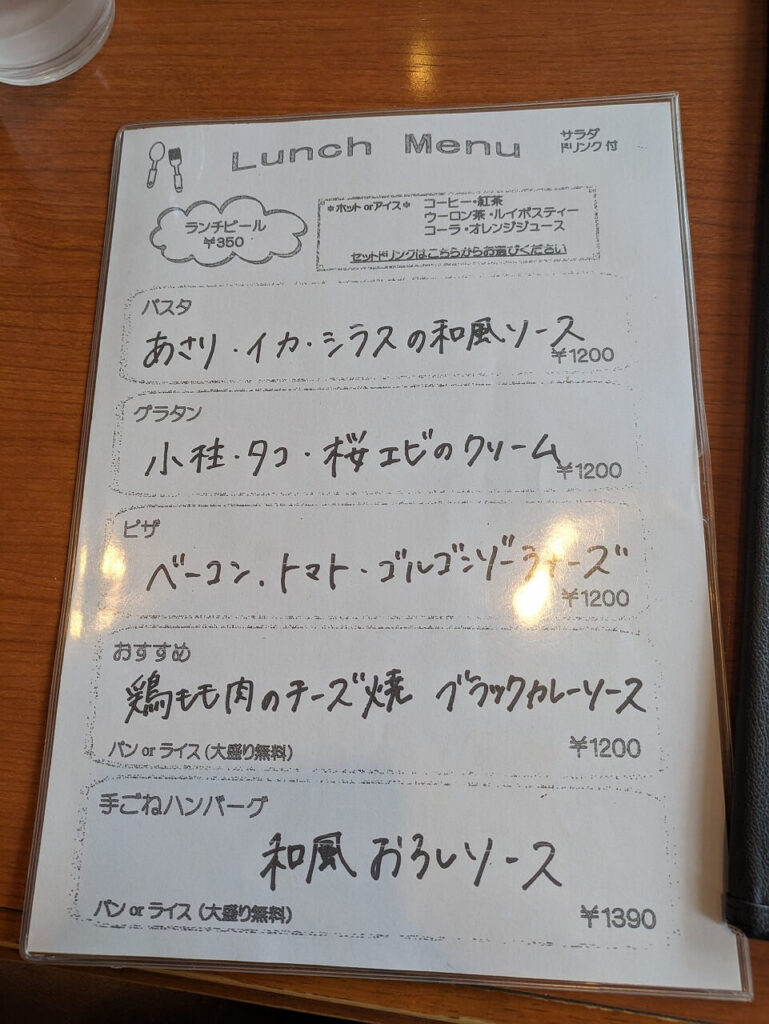 Lunch Menu
サラダ
ドリンク付
ランチビール
¥350
*ホット or アイス* コーヒー・紅茶
ウーロン茶・ルイボスティー
コーラ・オレンジジュース
セットドリンクはこちらからお選びください
パスタ
あさり・イカ・シラスの和風ソース
¥1200
グラタン
小柱・タコ・桜エビのクリーム
¥1200
ピザ
ベーコン・トマト・ゴルゴンゾーラチーズ
¥1200
おすすめ
鶏もも肉のチーズ焼 ブラックカレーソース
パン or ライス (大盛り無料)
¥1200
手ごねハンバーグ
和風おろしソース
パン or ライス (大盛り無料)
¥1390